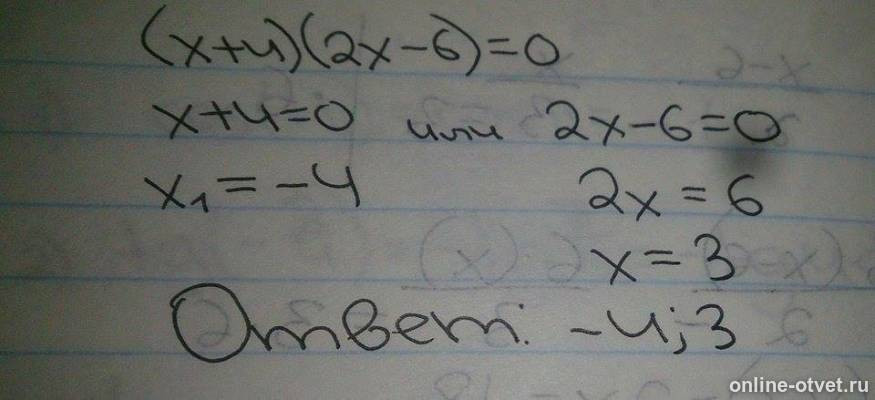 (x+4)(2x-6)=0
x+4=0 или 2x-6=0
x₁=-4 2x=6
x=3
Ответ: -4;3
online-otvet.ru